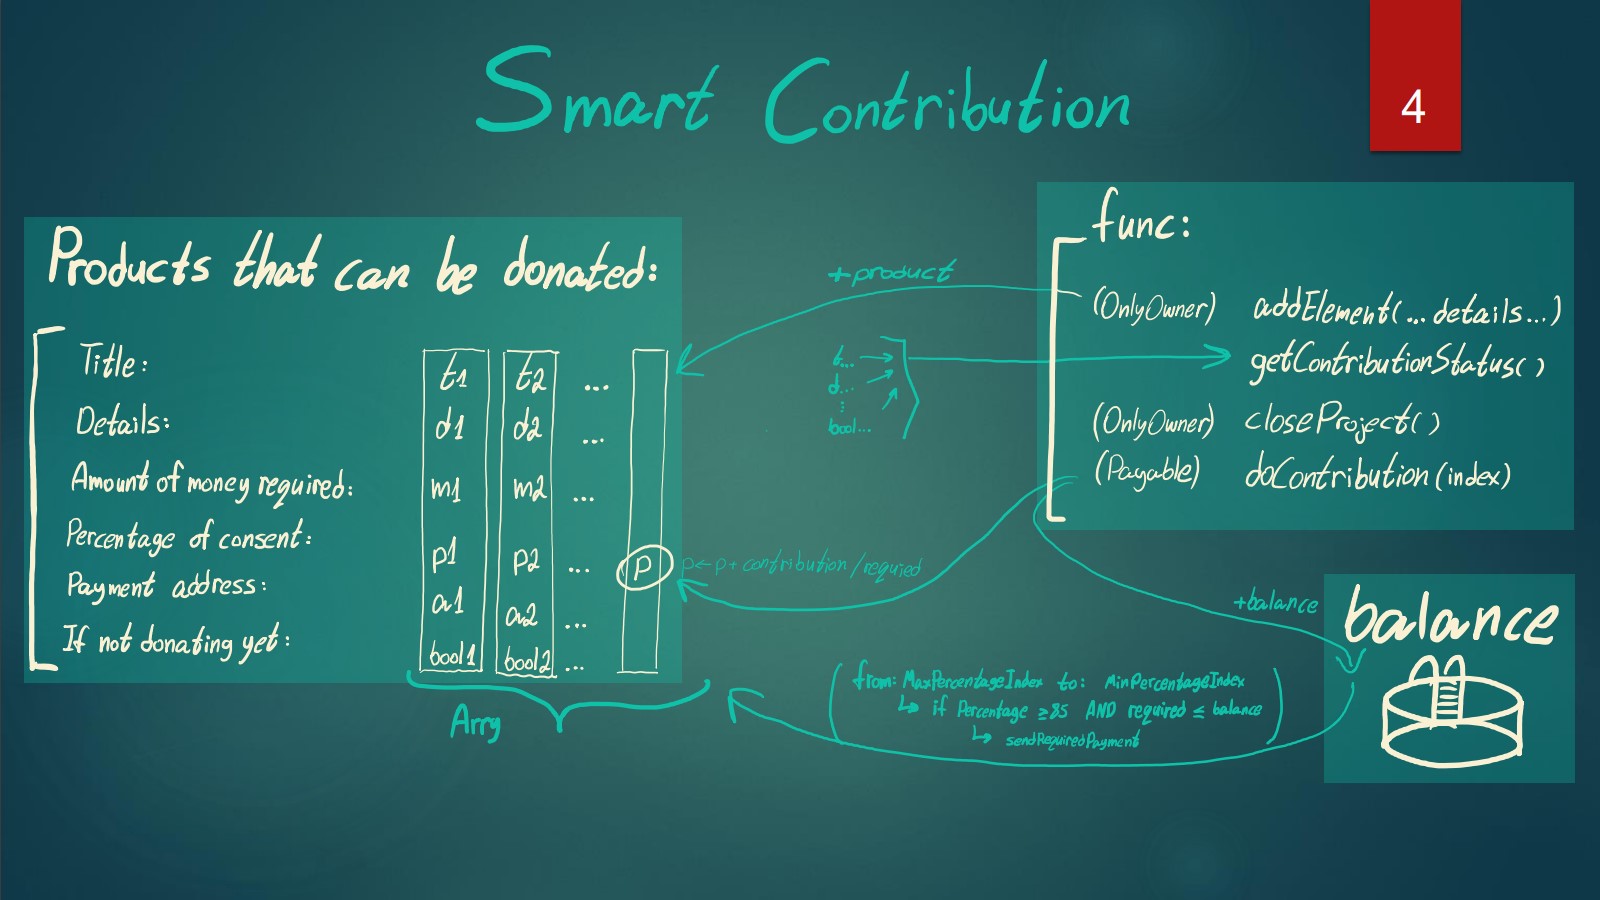 Smart Contribution
4
Products that can be donated:
Title:
Details:
Amount of money required:
Percentage of consent:
Payment address:
If not donating yet:
t1 t2 ...
d1 d2 ...
m1 m2 ...
p1 p2 ... P
a1 a2 ...
bool1 bool2 ...
Arry
+product
t...
d...
⋮
bool...
p←p+contribution/requied
func:
(OnlyOwner) addElement(...details...)
getContributionStatus()
(OnlyOwner) closeProject()
(Payable) doContribution(index)
+balance
balance
from: MaxPercentageIndex to: MinPercentageIndex
↳ if Percentage ≥85 AND required ≤ balance
↳ sendRequiredPayment